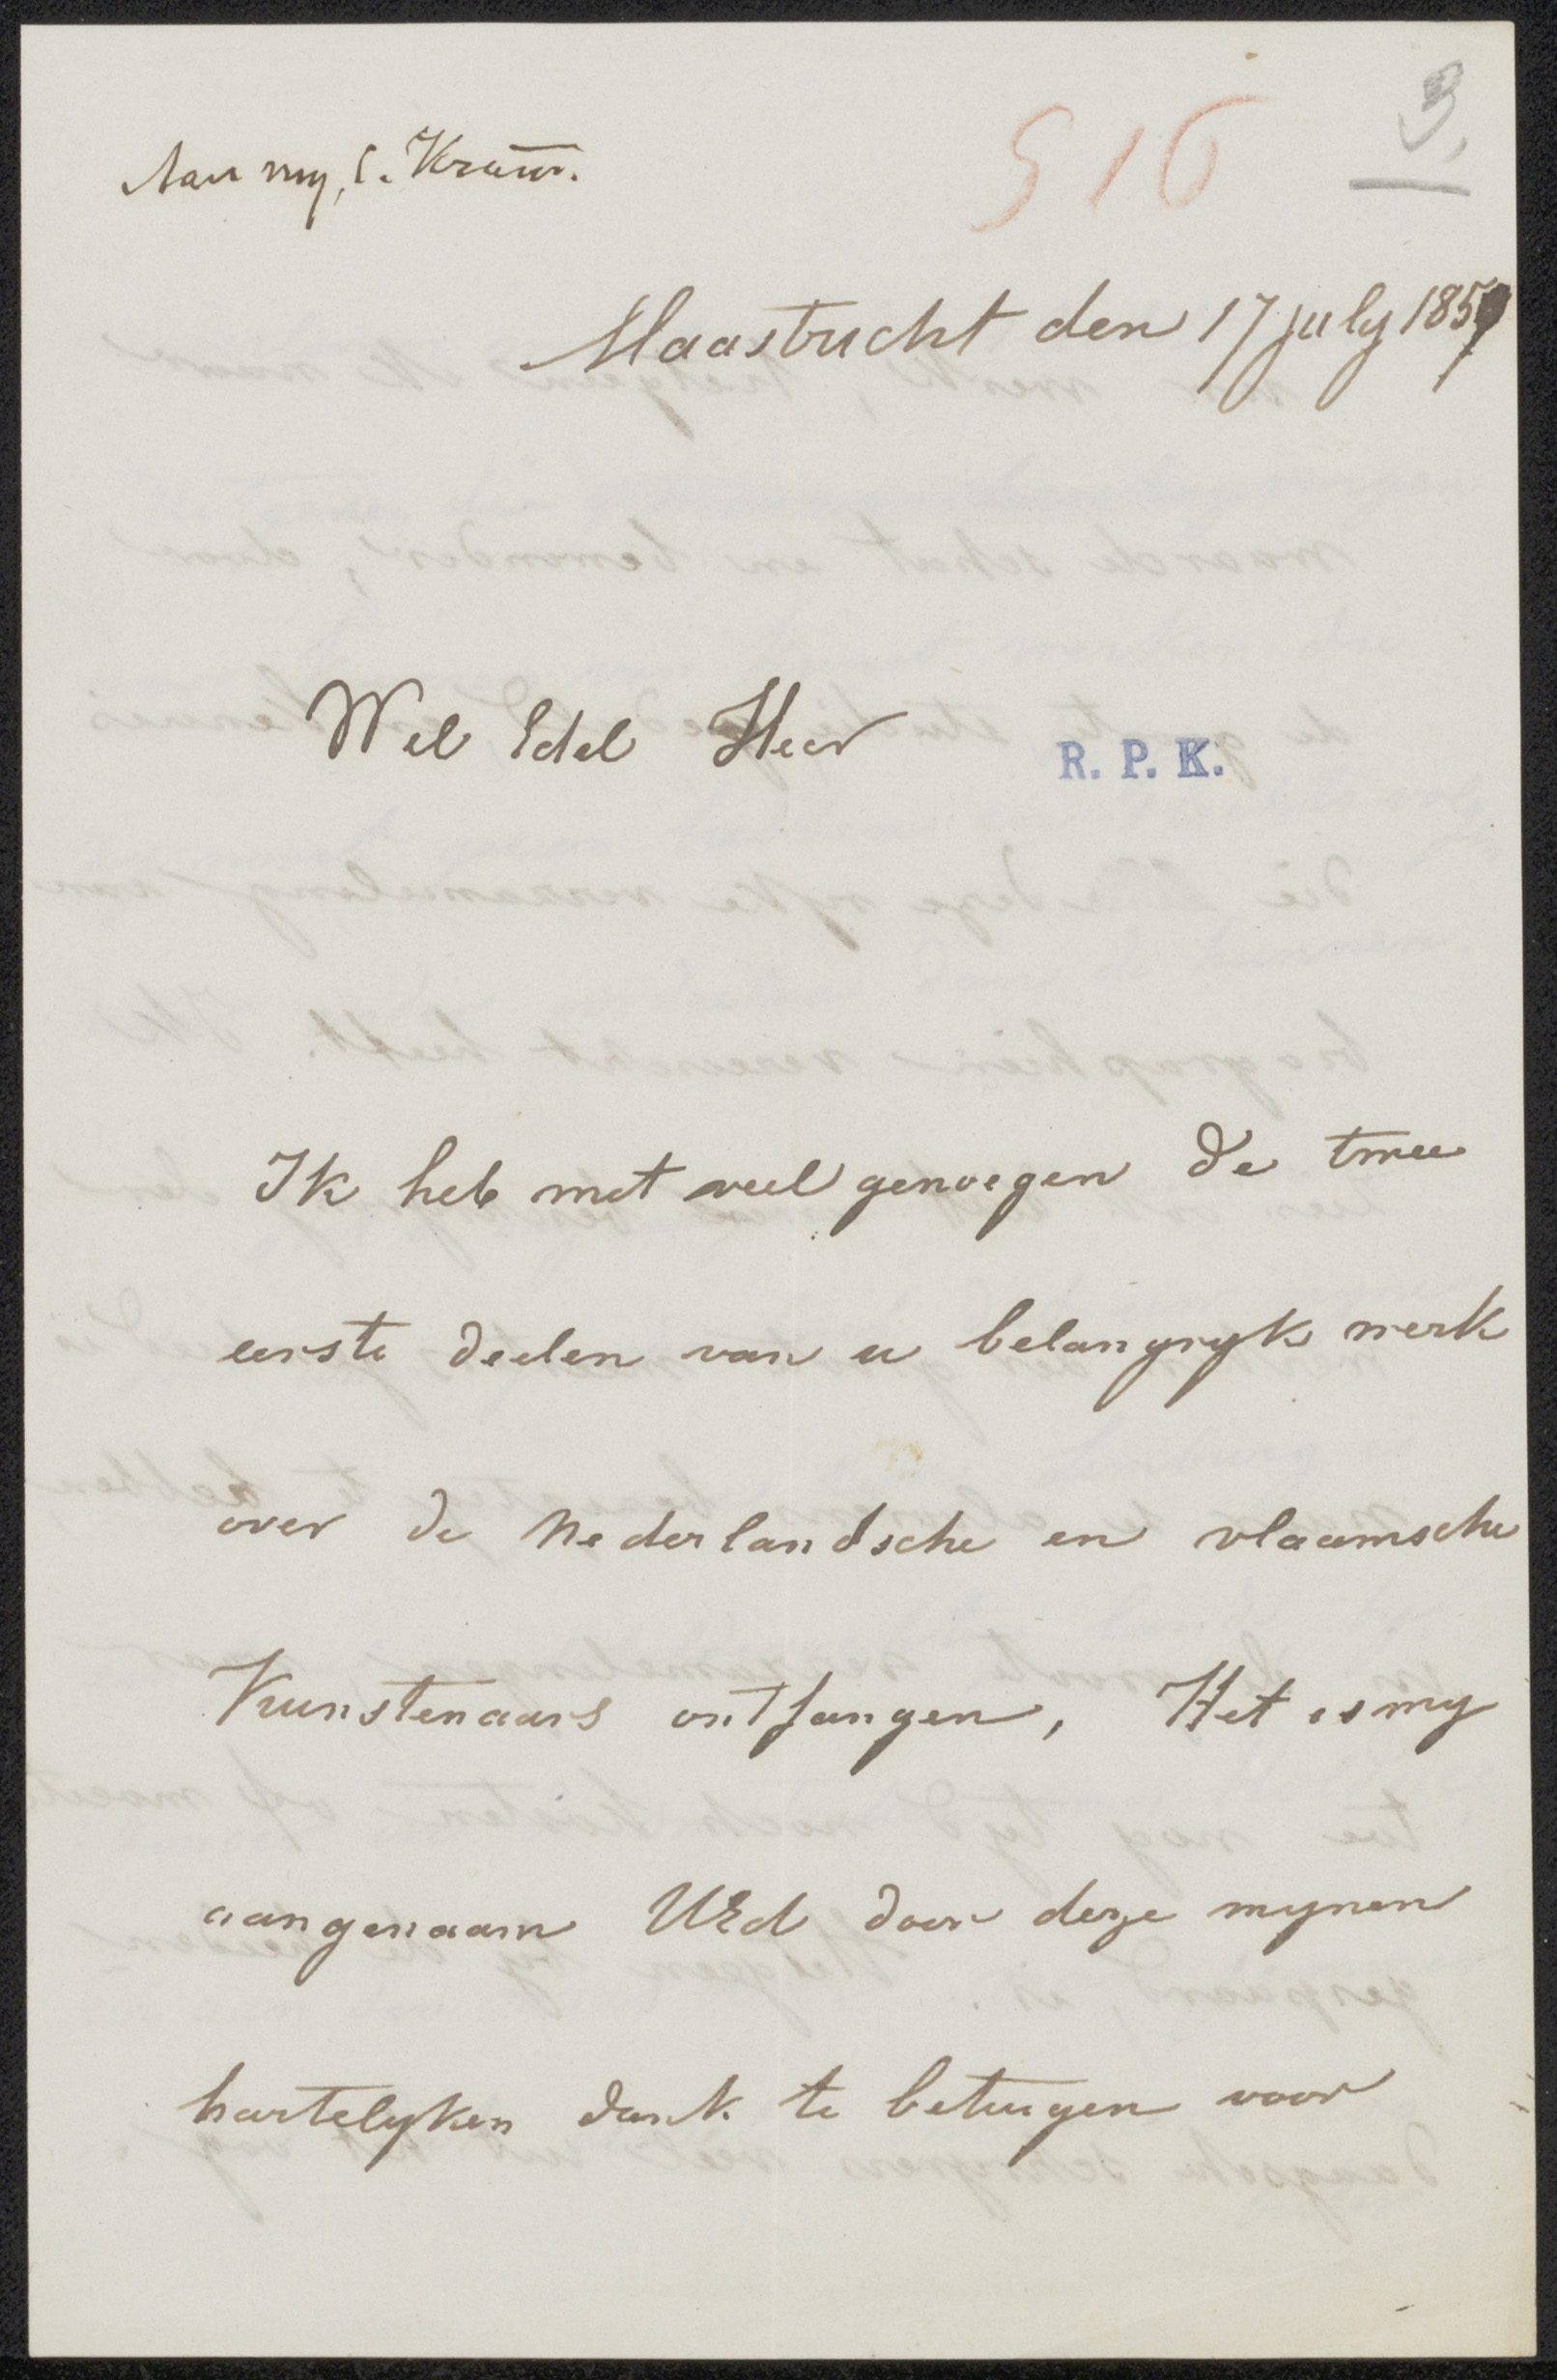 516
3.
Aan my, C. Kramm.
Maastricht den 17 july 1857
Wel Edel Heer
R. P. K.
Ik heb met veel genoegen de twee
eerste deelen van u belangryk werk
over de Nederlandsche en vlaamsche
Kunstenaars ontfangen, Het is my
aangenaam UEd door deze mynen
hartelyken dank te betuigen voor